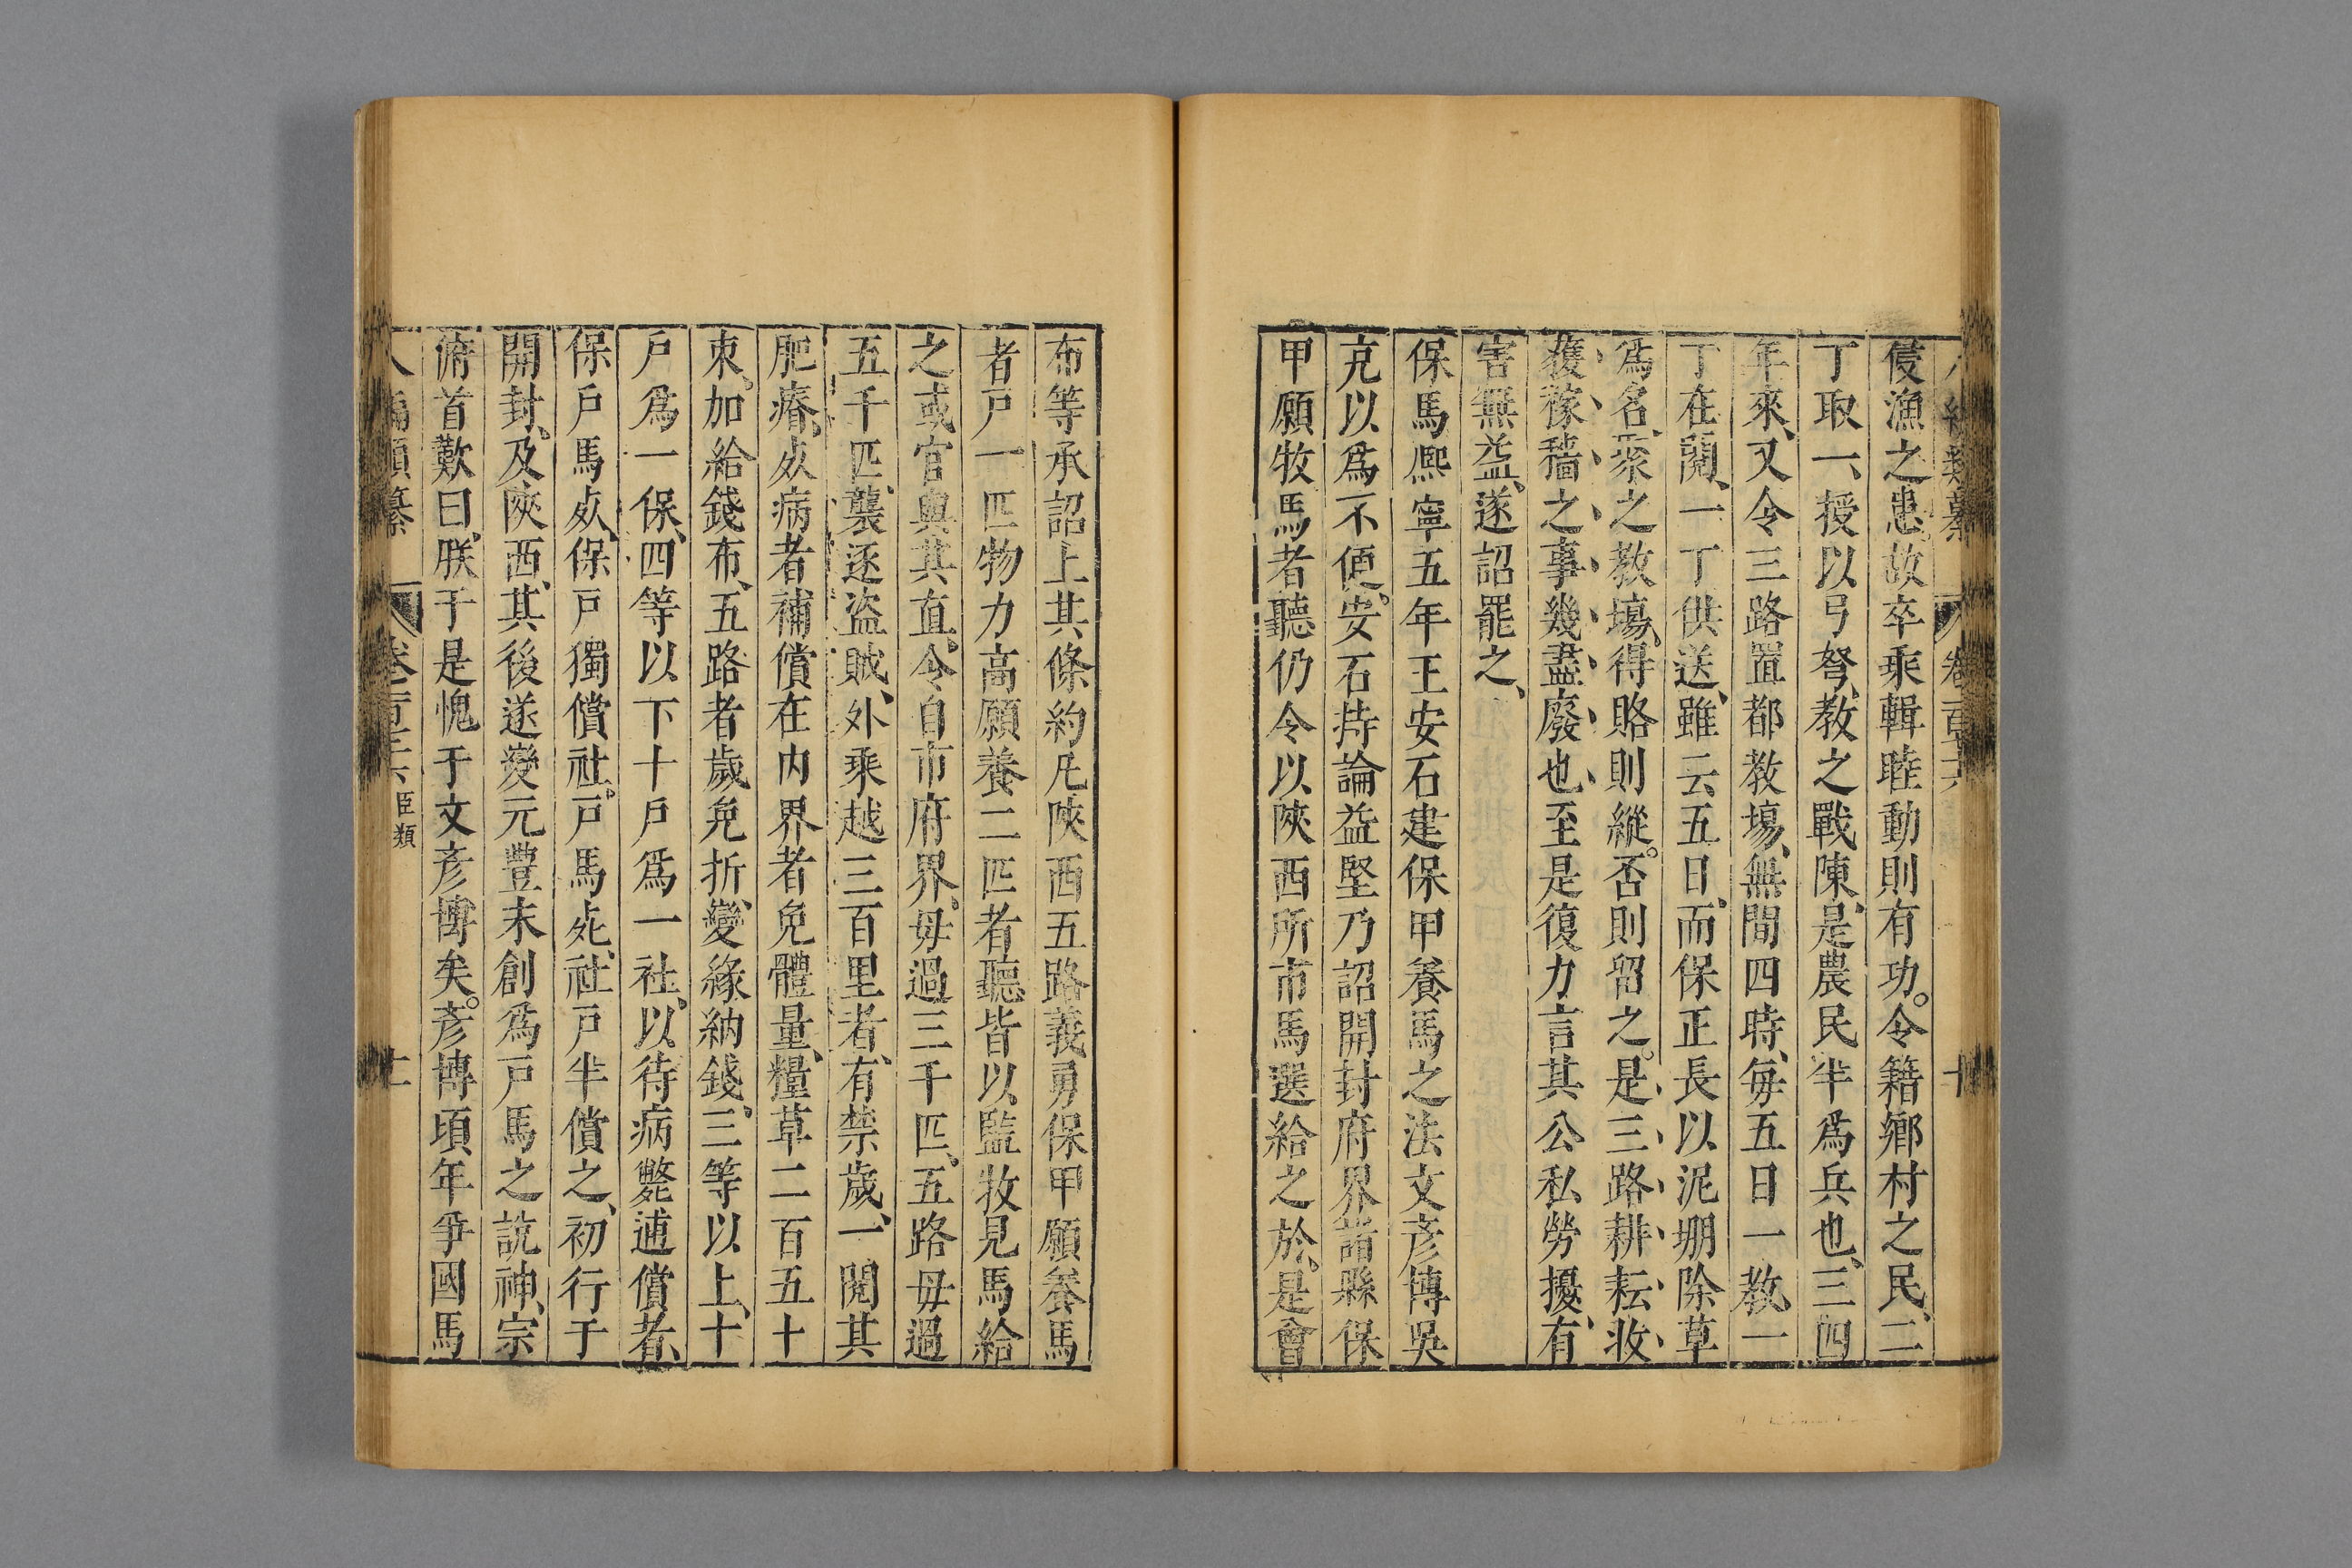 侵漁之患故卒乘輯睦動則有功令籍鄉村之民二
丁取一授以弓弩教之戰陳是農民半爲兵也三四
年來又令三路置都教場無間四時每五日一教一
丁在閱一丁供送雖云五日而保正長以泥堋除草
爲名聚之教場得賂則縱否則留之是三路耕耘收
穫稼穡之事幾盡廢也至是復力言其公私勞擾有
害無益遂詔罷之
保馬熈寧五年王安石建保甲養馬之法文彥博吳
充以爲不便安石持論益堅乃詔開封府界諸縣保
甲願牧馬者聽仍令以陝西所市馬選給之於是會
布等承詔上其條約凡陝西五路義勇保甲願養馬
者戸一匹物力高願養二匹者聽皆以監牧見馬給
之或官與其直令自市府界毋過三千匹五路毋過
五千匹襲逐盗賊外乘越三百里者有禁歲一閱其
肥瘠死病者補償在内界者免體量糧草二百五十
束加給錢布五路者歲免折變緣納錢三等以上十
戸爲一保四等以下十戸爲一社以待病斃逋償者
保戸馬死保戸獨償社戸馬死社戸半償之初行于
開封及陝西其後遂變元豐末創爲戸馬之說神宗
俯首歎曰朕于是愧于文彥博矣彥博項年爭國馬
八編類纂 卷百三六 臣類 十一